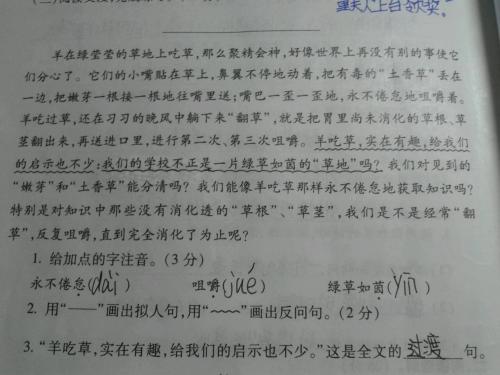 里夫人上台领奖。
羊在绿莹莹的草地上吃草,那么聚精会神,好像世界上再没有别的事使它
们分心了。它们的小嘴贴在草上,鼻翼不停地动着,把有毒的“土香草”丢在
一边,把嫩芽一根接一根地往嘴里送;嘴巴一歪一歪地,永不倦怠地咀嚼着。
羊吃过草,还在习习的晚风中躺下来“翻草”,就是把胃里尚未消化的草根、草
茎翻出来,再送进口里,进行第二次、第三次咀嚼。羊吃草,实在有趣;给我们
的启示也不少:我们的学校不正是一片绿草如茵的“草地”吗?我们对见到的
“嫩芽”和“土香草”能分清吗?我们能像羊吃草那样永不倦怠地获取知识吗?
特别是对知识中那些没有消化透的“草根”、“草茎”,我们是不是经常“翻
草”,反复咀嚼,直到完全消化了为止呢?
1. 给加点的字注音。(3 分)
永不倦怠(dài) 咀嚼(jué) 绿草如茵(yīn)
2. 用“——”画出拟人句,用“﹏﹏”画出反问句。(2 分)
3.“羊吃草,实在有趣,给我们的启示也不少。”这是全文的 过渡 句。